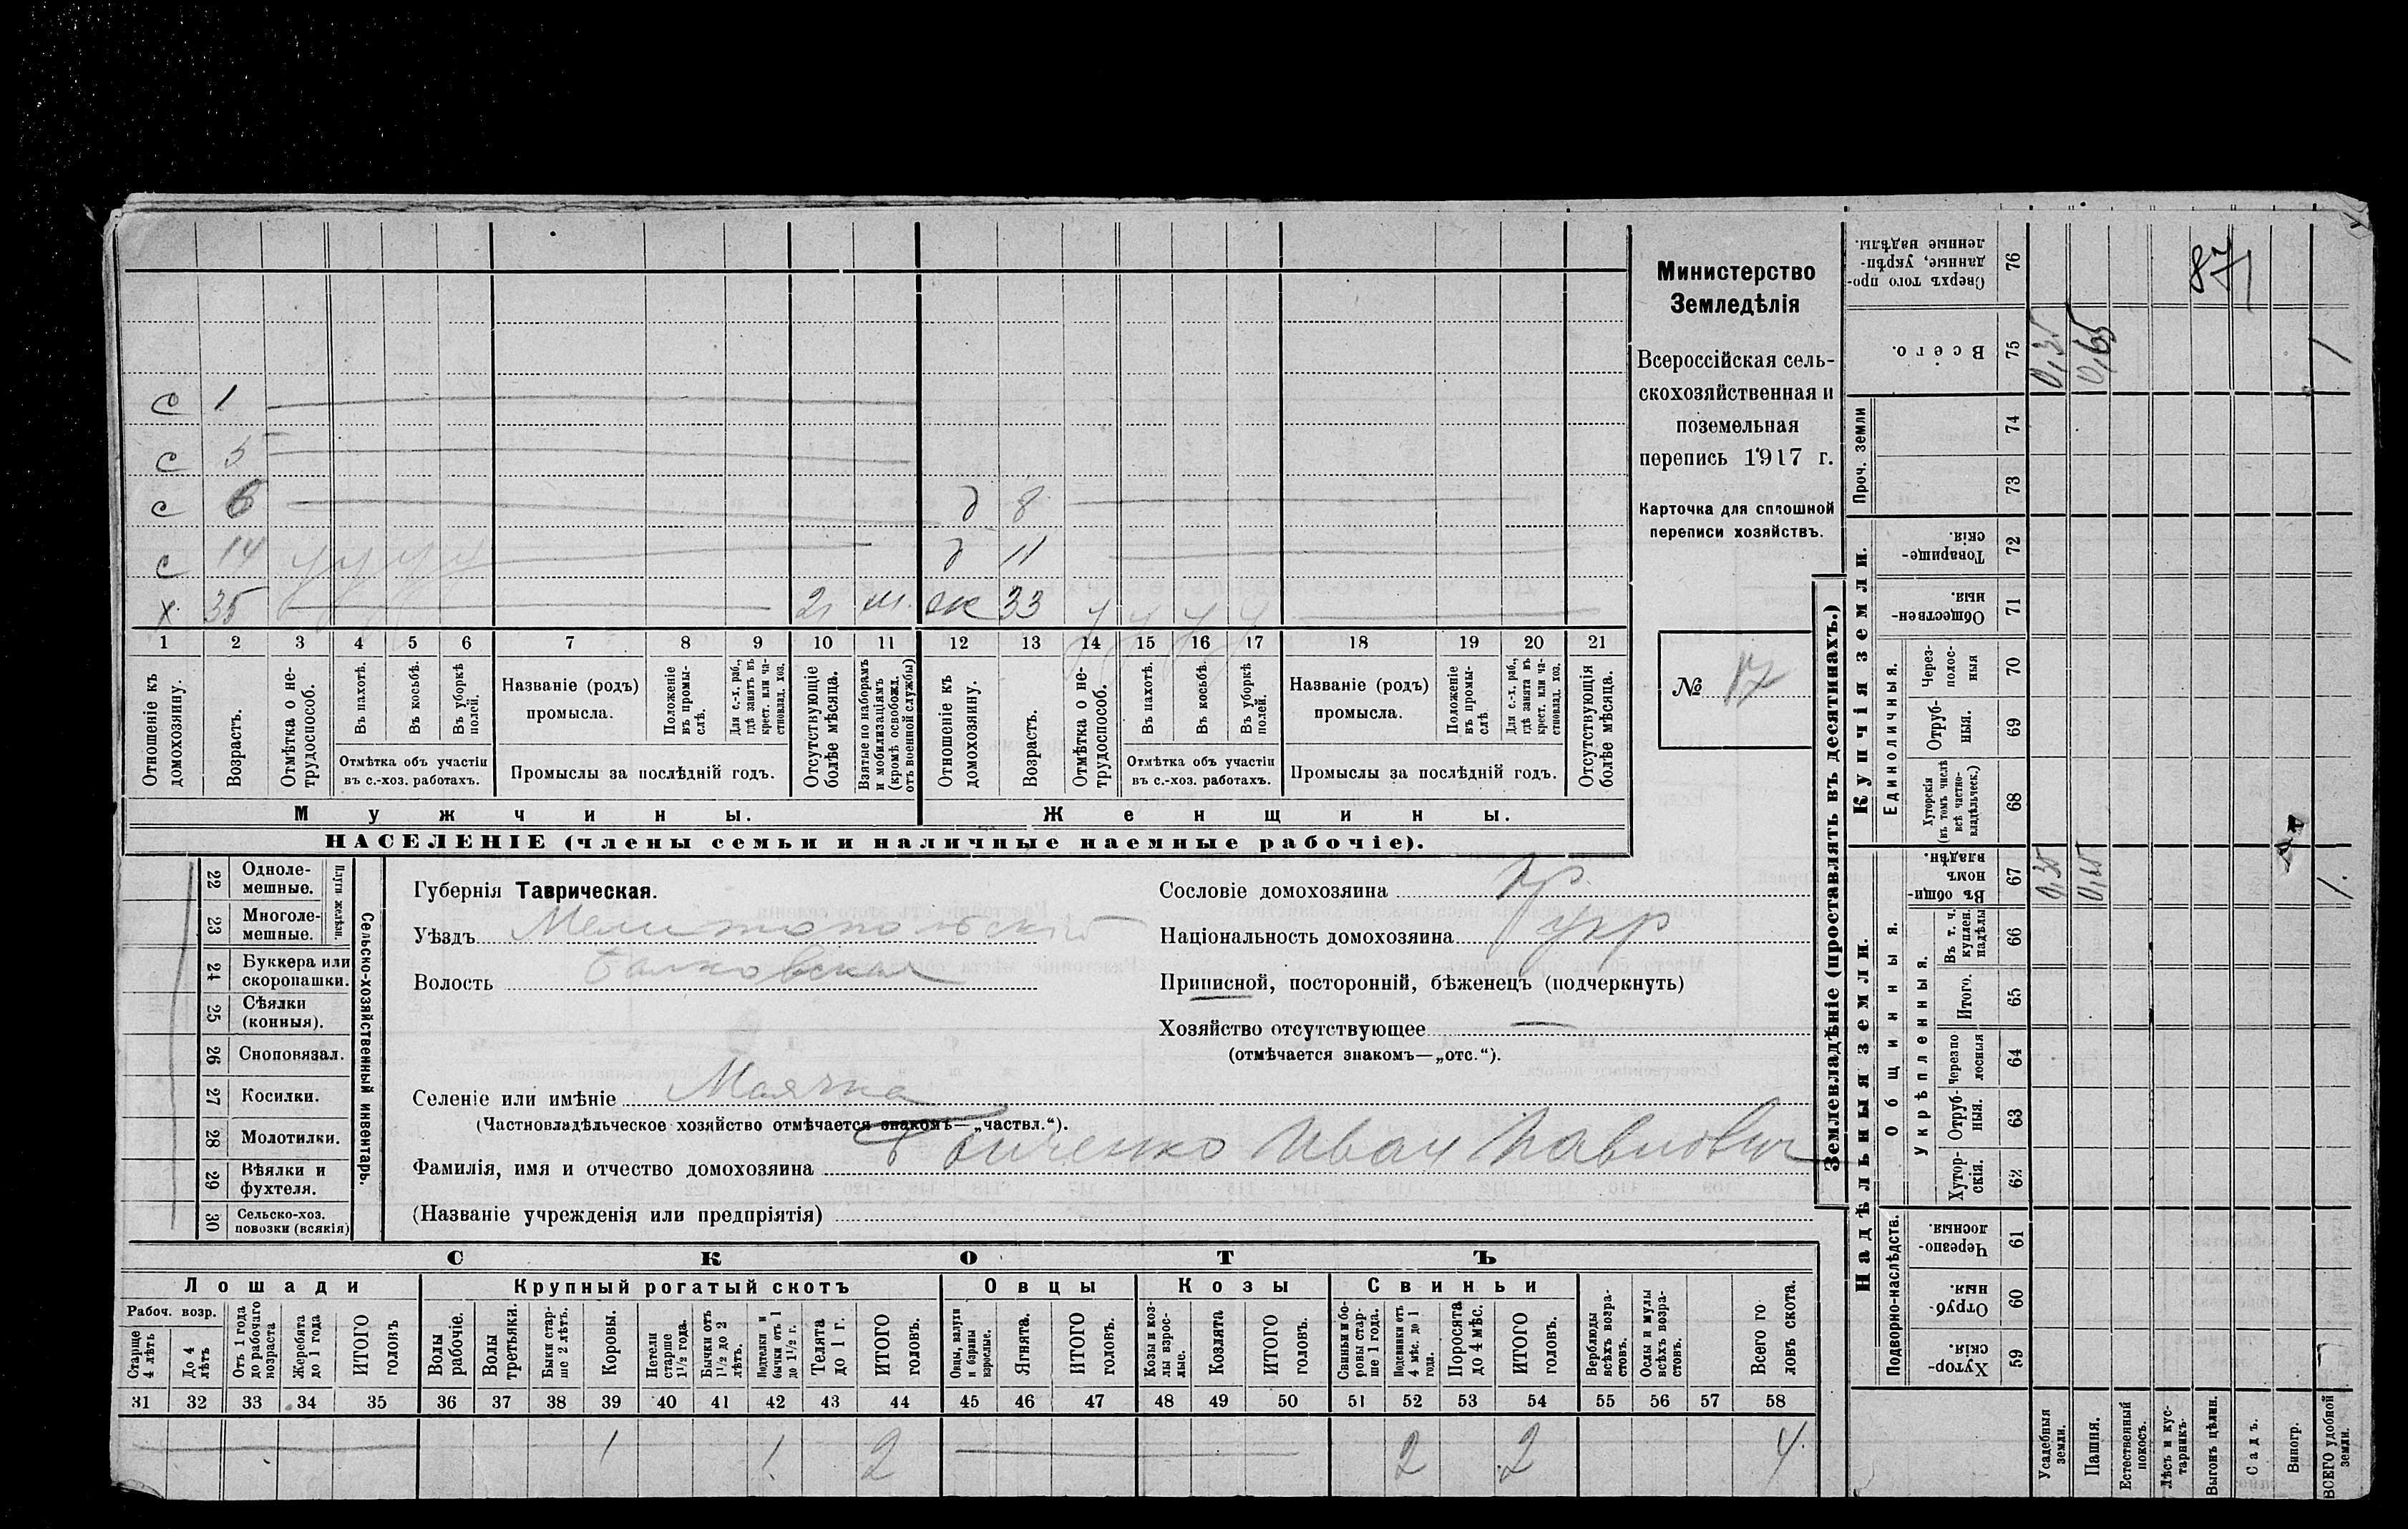 Министерство
Земледѣлія
Всероссійская сель-
скохозяйственная и
поземельная
перепись 1917 г.
Карточка для сплошной
переписи хозяйствъ.
№ 17
с 1
с 5
с 6 д 8
с 14 у у у у д 11
х 35 21 м. ж 33 у у у у
1 2 3 4 5 6 7 8 9 10 11 12 13 14 15 16 17 18 19 20 21
Отношеніе къ домохозяину.
Возрастъ.
Отмѣтка о не-трудоспособ.
Въ пахотѣ.
Въ косьбѣ.
Въ уборкѣ полей.
Отмѣтка объ участіи въ с.-хоз. работахъ.
Названіе (родъ) промысла.
Положеніе въ промы-слѣ.
Для с.-х. раб., гдѣ занятъ въ крест. или ча-стновлад. хоз.
Промыслы за послѣдній годъ.
Отсутствующіе болѣе мѣсяца.
Взятые по наборамъ и мобилизаціямъ (кромѣ освобожд. отъ военной службы)
Отношеніе къ домохозяину.
Возрастъ.
Отмѣтка о не-трудоспособ.
Въ пахотѣ.
Въ косьбѣ.
Въ уборкѣ полей.
Отмѣтка объ участіи въ с.-хоз. работахъ.
Названіе (родъ) промысла.
Положеніе въ промы-слѣ
Для с.-х. раб., гдѣ занята въ крест. или ча-стновлад. хоз.
Промыслы за послѣдній годъ.
Отсутствующія болѣе мѣсяца.
Мужчины. Женщины.
НАСЕЛЕНІЕ (члены семьи и наличные наемные рабочіе).
22 Одноле-мешные.
23 Многоле-мешные.
Плуги желѣзн.
24 Буккера или скоропашки.
25 Сѣялки (конныя).
26 Сноповязал.
27 Косилки.
28 Молотилки.
29 Вѣялки и фухтеля.
30 Сельско-хоз. повозки (всякія)
Сельско-хозяйственный инвентарь.
Губернія Таврическая.
Уѣздъ Мелитопольскій
Волость Балковская
Селеніе или имѣніе Маячка
(Частновладѣльческое хозяйство отмѣчается знакомъ—„частвл.“).
Фамилія, имя и отчество домохозяина Иван Павлович
(Названіе учрежденія или предпріятія)
Сословіе домохозяина кр.
Національность домохозяина укр
Приписной, посторонній, бѣженецъ (подчеркнуть)
Хозяйство отсутствующее —
(отмѣчается знакомъ—„отс.“).
СКОТЪ
Лошади Крупный рогатый скотъ Овцы Козы Свиньи
Рабоч. возр.
Старше 4 лѣтъ
До 4 лѣтъ
Отъ 1 года до рабочаго возраста
Жеребята до 1 года
ИТОГО головъ
Волы рабочіе.
Волы третьяки.
Быки стар-ше 2 лѣтъ.
Коровы.
Нетели старше 1½ года.
Бычки отъ 1½ до 2 лѣтъ.
Подтелки и бычки отъ 1 до 1½ г.
Телята до 1 г.
ИТОГО головъ.
Овцы, валухи и бараны взрослые.
Ягнята.
ИТОГО головъ.
Козы и коз-лы взрос-лые.
Козлята
ИТОГО головъ.
Свиньи и бо-ровы стар-ше 1 года.
Подсвинки отъ 4 мѣс. до 1 года.
Поросята до 4 мѣс.
ИТОГО головъ.
Верблюды всѣхъ возра-стовъ.
Ослы и мулы всѣхъ возра-стовъ.
Всего го ловъ скота.
31 32 33 34 35 36 37 38 39 40 41 42 43 44 45 46 47 48 49 50 51 52 53 54 55 56 57 58
1 1 2 2 2 4
Землевладѣніе (проставлять въ десятинахъ.)
Надѣльныя земли. Купчія земли. Проч. земли
Подворно-наслѣдств.
Общинныя.
Укрѣпленныя.
Единоличныя.
59 Хутор-скія.
60 Отруб-ныя.
61 Черезпо-лосныя.
62 Хутор-скія.
63 Отруб-ныя.
64 Черезпо лосныя
65 Итого.
66 Въ т. ч. куплен. надѣлы
67 Въ общи номъ владѣн.
68 Хуторскія (въ томъ числѣ всѣ частно-владѣльческ.)
69 Отруб-ныя.
70 Через-полос-ныя
71 Обществен-ныя.
72 Товарище-скія.
73
74
75 Всего.
76 Сверхъ того про-данные, укрѣп-ленные надѣлы.
Усадебныя земли. 0,35 0,35
Пашня. 0,65 0,65
Естественный покосъ.
Лѣсъ и кус-тарникъ.
Выгонъ цѣлин. 87
Садъ.
Виногр.
ВСЕГО удобной земли. 1. 1